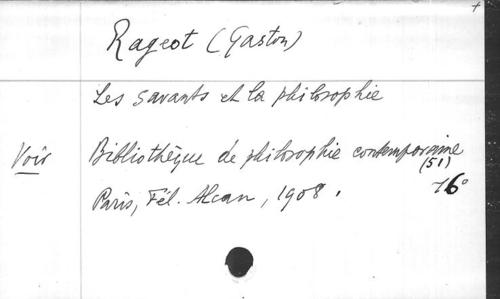 +
Rageot (Gaston)
Les savants et la philosophie
Voir Bibliothèque de philosophie contemporaine
(51)
Paris, Fél. Alcan, 1908. 16°